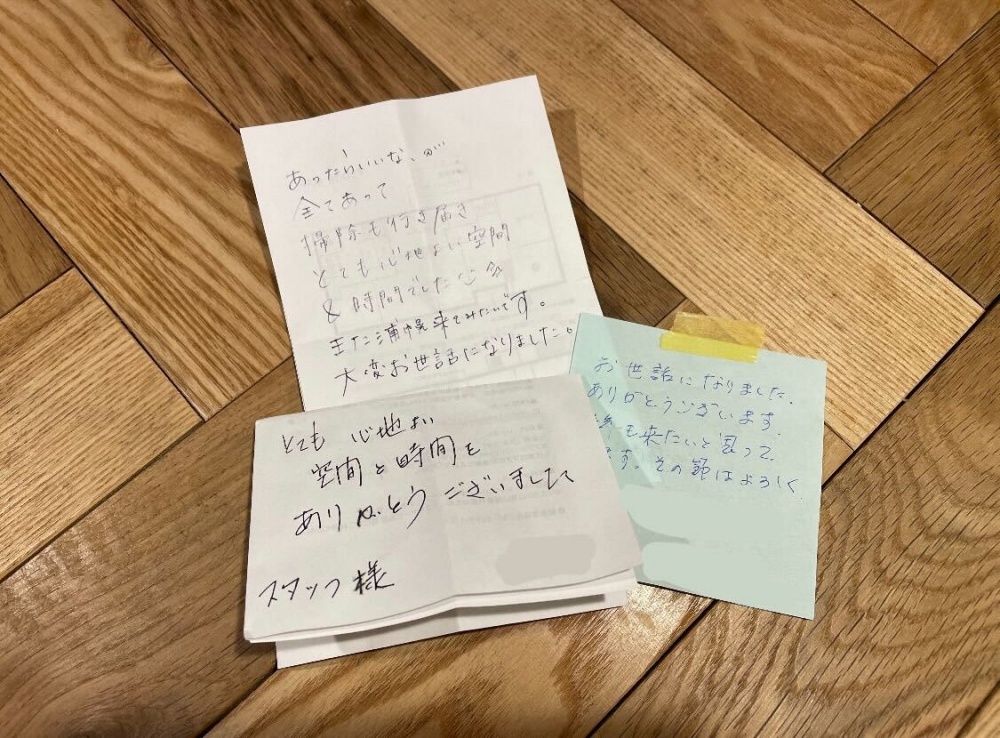 あったらいいな、が
全てあって
掃除も行き届き
とても心地よい空間
& 時間でした
また浦幌来てみたいです。
大変お世話になりました。
とても 心地よい
空間と時間を
ありがとうございました
スタッフ様
お世話になりました。
ありがとうございます。
も来たいと思って
ます。その節はよろしく